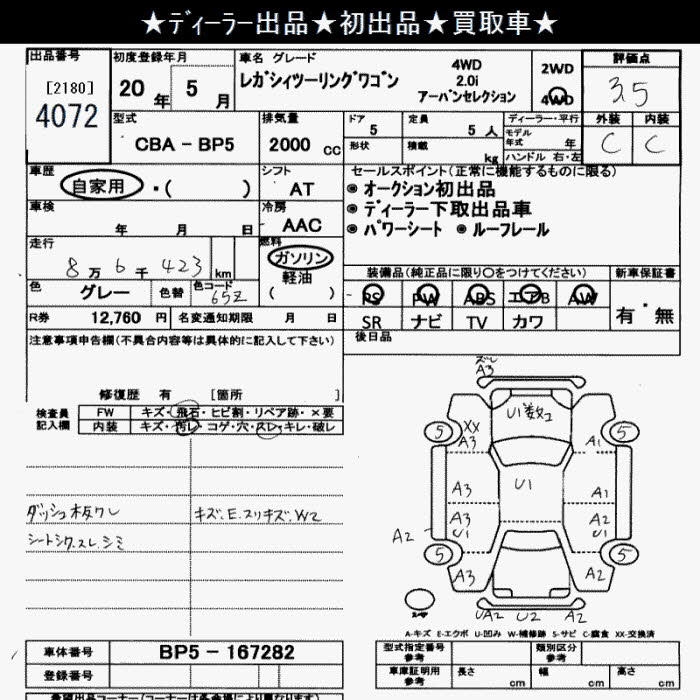 ★ディーラー出品★初出品★買取車★
出品番号 初度登録年月 車名 グレード 評価点
[2180] 4072
20年 5月
レガシィツーリングワゴン
4WD
2.0i
アーバンセレクション
2WD
4WD
3.5
型式 排気量 ドア 定員 ディーラー・平行 外装 内装
CBA - BP5 2000 cc 5 5人 モデル年式 年 C C
形状 積載 kg ハンドル 右・左
車歴 シフト セールスポイント(正常に機能するものに限る)
自家用・( ) AT ◉オークション初出品
車検 冷房 ◉ディーラー下取出品車
年 月 日 AAC ◉パワーシート ◉ルーフレール
走行 燃料
8万6千423 km ガソリン
軽油
( )
装備品(純正品に限り○をつけてください) 新車保証書
色 グレー 色替 色コード 65Z
PS PW ABS エアB AW 有・無
SR ナビ TV カワ
R券 12,760 円 名変通知期限 月 日
後日品
注意事項申告欄(不具合内容等は具体的に記入して下さい)
修復歴 有 [箇所 ]
検査員記入欄 FW キズ・飛石・ヒビ割・リペア跡・×要
内装 キズ・汚レ・コゲ・穴・スレ・キレ・破レ
ズレ
A3
U1 数2
5 XX 5
A3 A1
U1
A3 A1
A3 A2
U1 U1
A2
5 5
A3 A2
UA2 U2 A2
ダッシュ板ワレ キズ.E.スリキズ.W2
シートシワ.スレ.シミ
A-キズ E-エクボ U-凹み W-補修跡 S-サビ C-腐食 XX-交換済
車体番号 BP5 - 167282
型式指定番号 参考 類別区分 参考
登録番号
車庫証明用 参考 長さ cm 幅 cm 高さ cm
希望出品コーナー(コーナーは各会場により異なります)